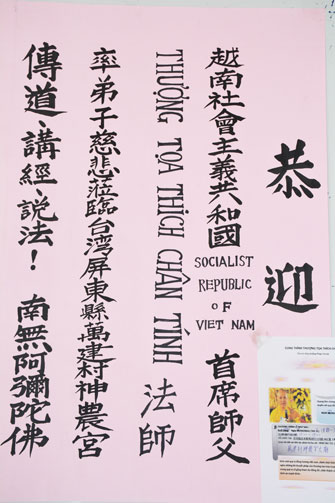 恭迎
越南社會主義共和國
SOCIALIST
REPUBLIC
OF
VIET NAM
首席師父
THƯỢNG TỌA THÍCH CHÂN TÍNH
法師
率弟子慈悲蒞臨台湾屏東縣萬建村神農宮
傳道、講經、說法！ 南無阿彌陀佛